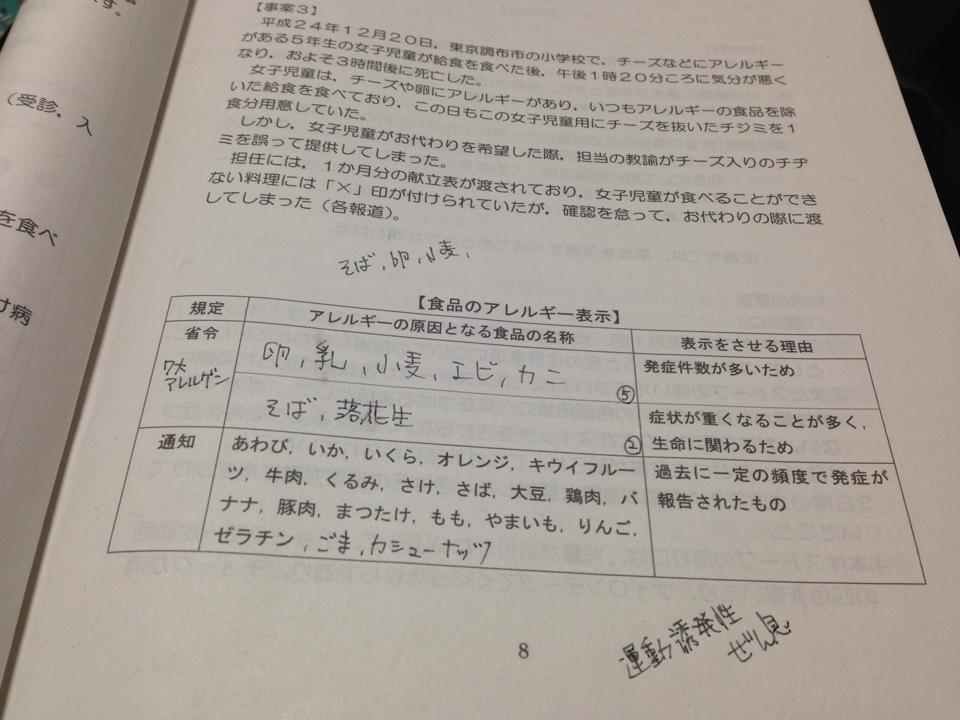 す。
(受診,入
を食べ
け病
【事案3】
平成24年12月20日,東京調布市の小学校で,チーズなどにアレルギー
がある5年生の女子児童が給食を食べた後,午後1時20分ころに気分が悪く
なり,およそ3時間後に死亡した。
女子児童は,チーズや卵にアレルギーがあり,いつもアレルギーの食品を除
いた給食を食べており,この日もこの女子児童用にチーズを抜いたチジミを1
食分用意していた。
しかし,女子児童がお代わりを希望した際,担当の教諭がチーズ入りのチヂ
ミを誤って提供してしまった。
担任には,1か月分の献立表が渡されており,女子児童が食べることができ
ない料理には「×」印が付けられていたが,確認を怠って,お代わりの際に渡
してしまった(各報道)。
そば,卵,小麦,
【食品のアレルギー表示】
規定 アレルギーの原因となる食品の名称 表示をさせる理由
省令 卵,乳,小麦,エビ,カニ ⑤ 発症件数が多いため
7大
アレルゲン
そば,落花生 ② 症状が重くなることが多く,
生命に関わるため
通知 あわび,いか,いくら,オレンジ,キウイフルー
ツ,牛肉,くるみ,さけ,さば,大豆,鶏肉,バ
ナナ,豚肉,まつたけ,もも,やまいも,りんご,
ゼラチン,ごま,カシューナッツ
過去に一定の頻度で発症が
報告されたもの
8
運動誘発性
ぜん息